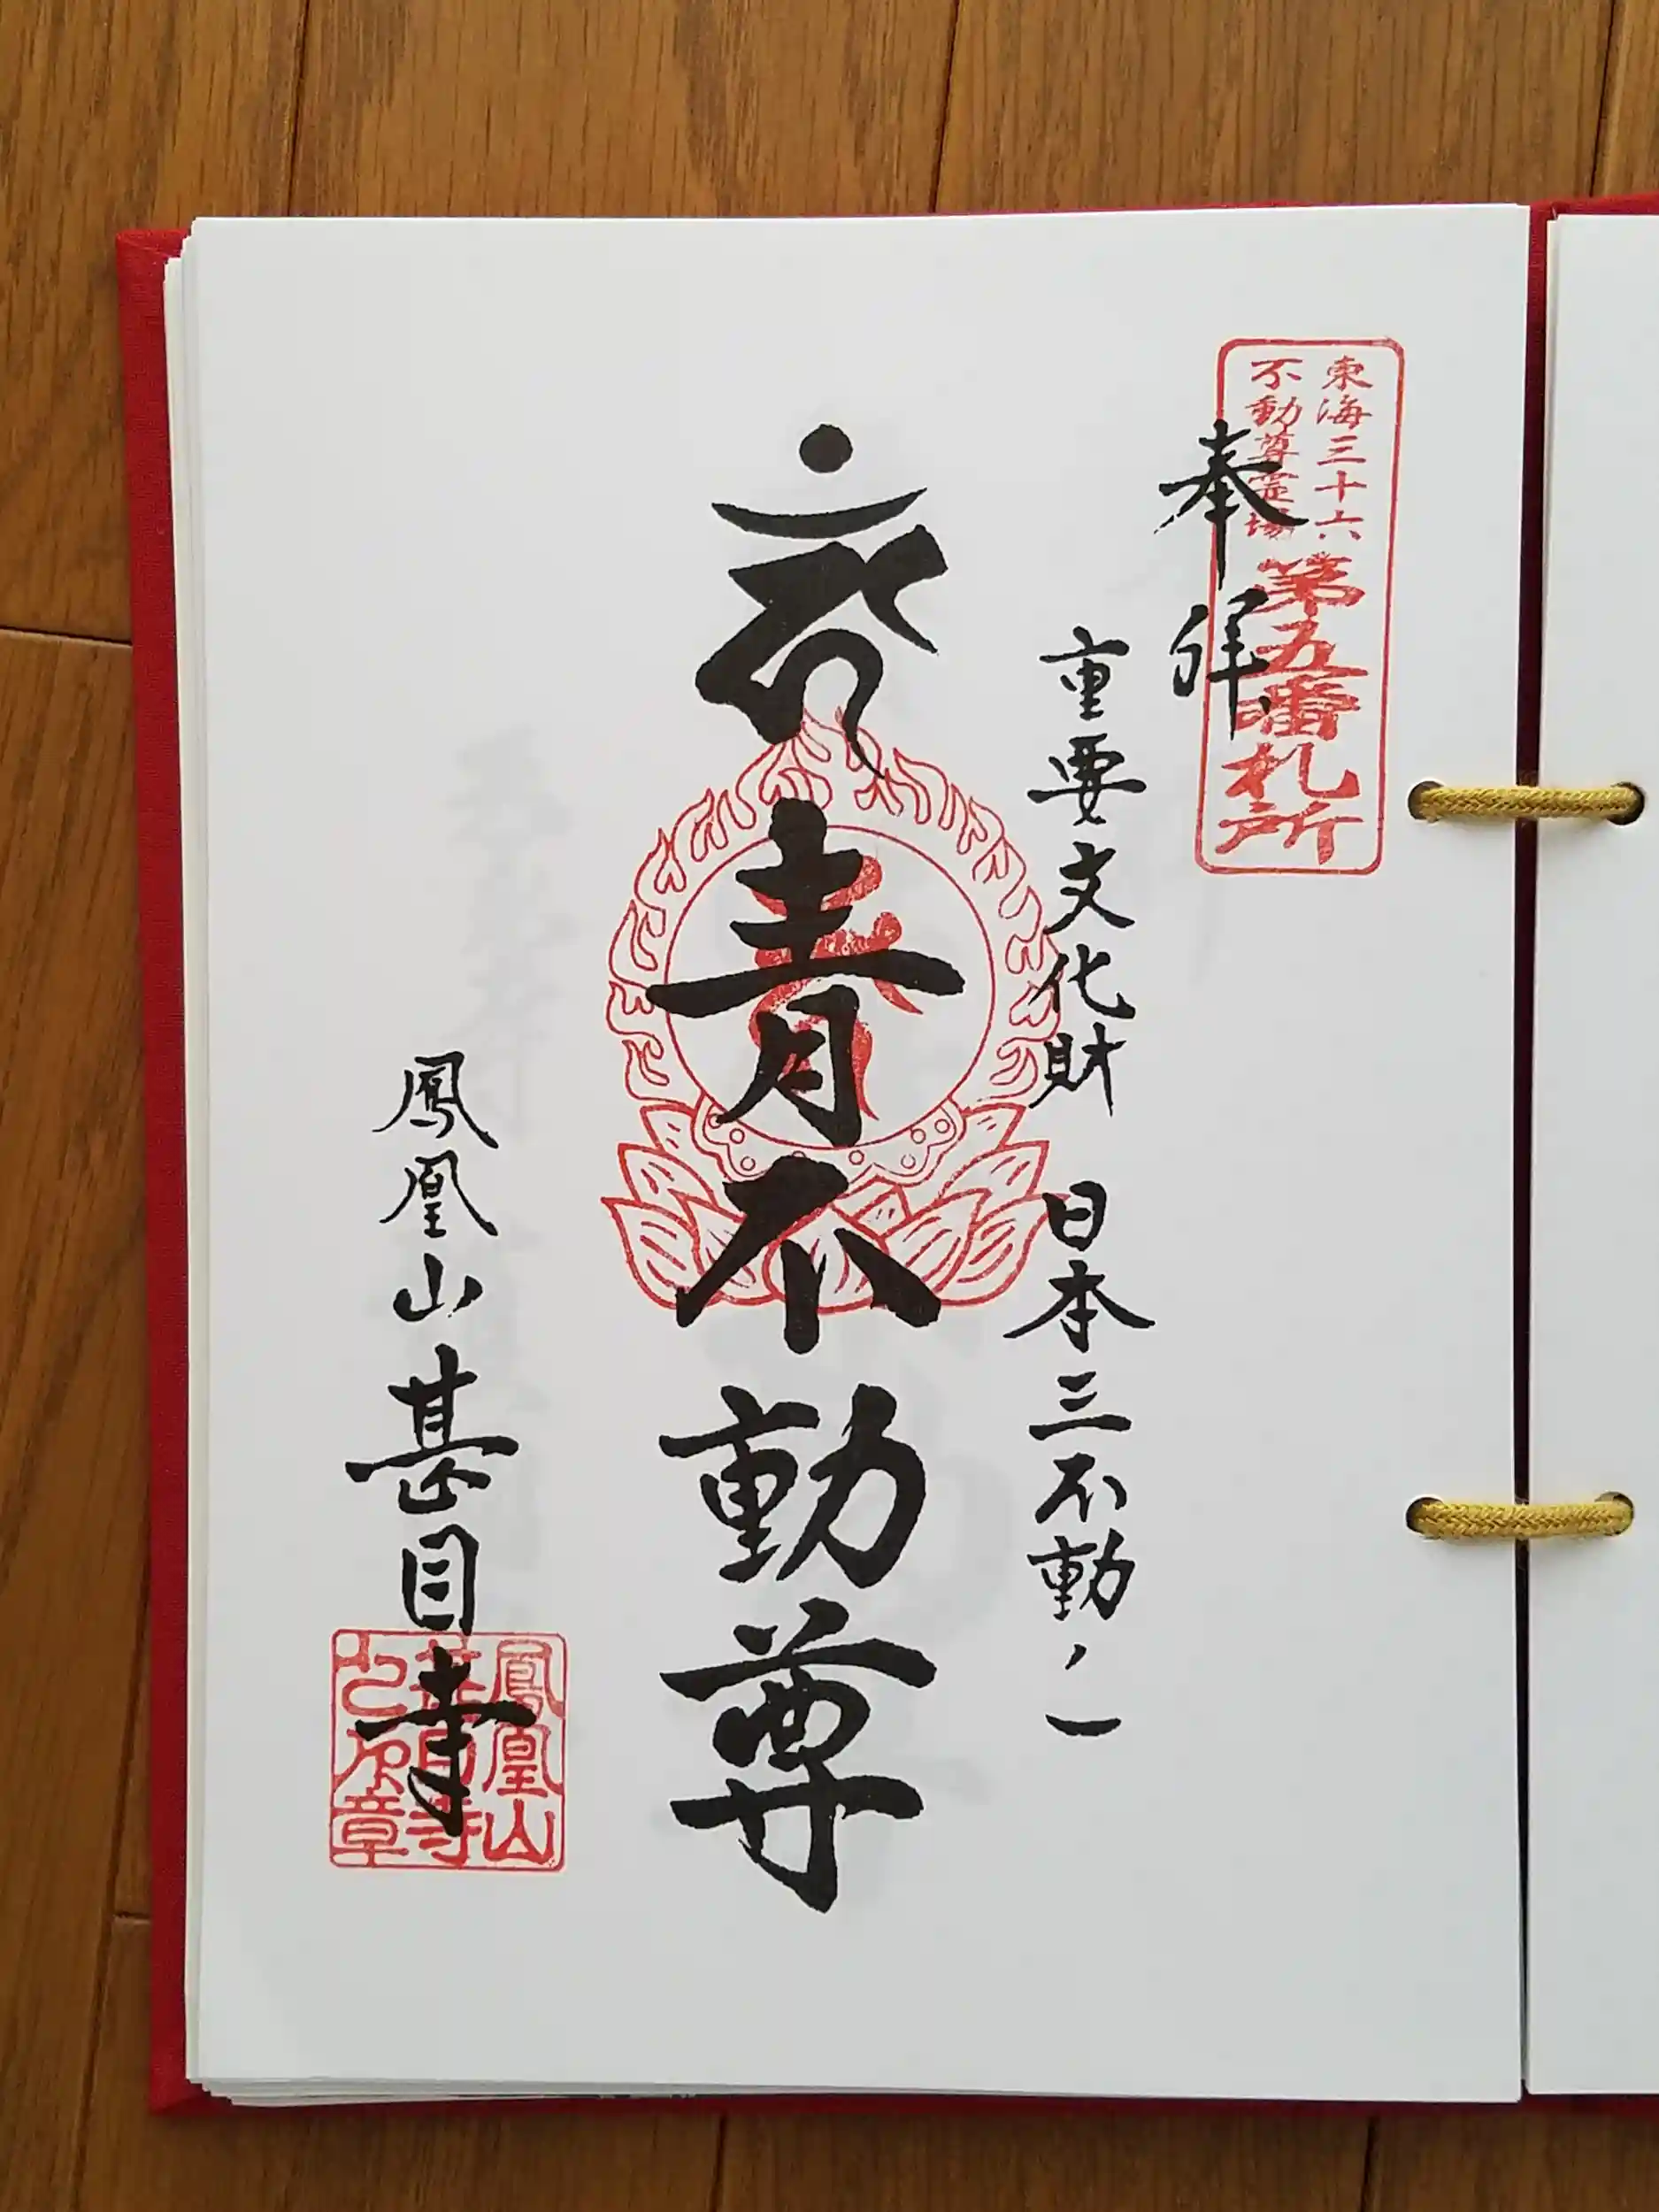 東海三十六
不動尊霊場
第五番札所
奉拝
重要文化財 日本三不動ノ一
青不動尊
鳳凰山甚目寺
鳳凰山
甚目寺